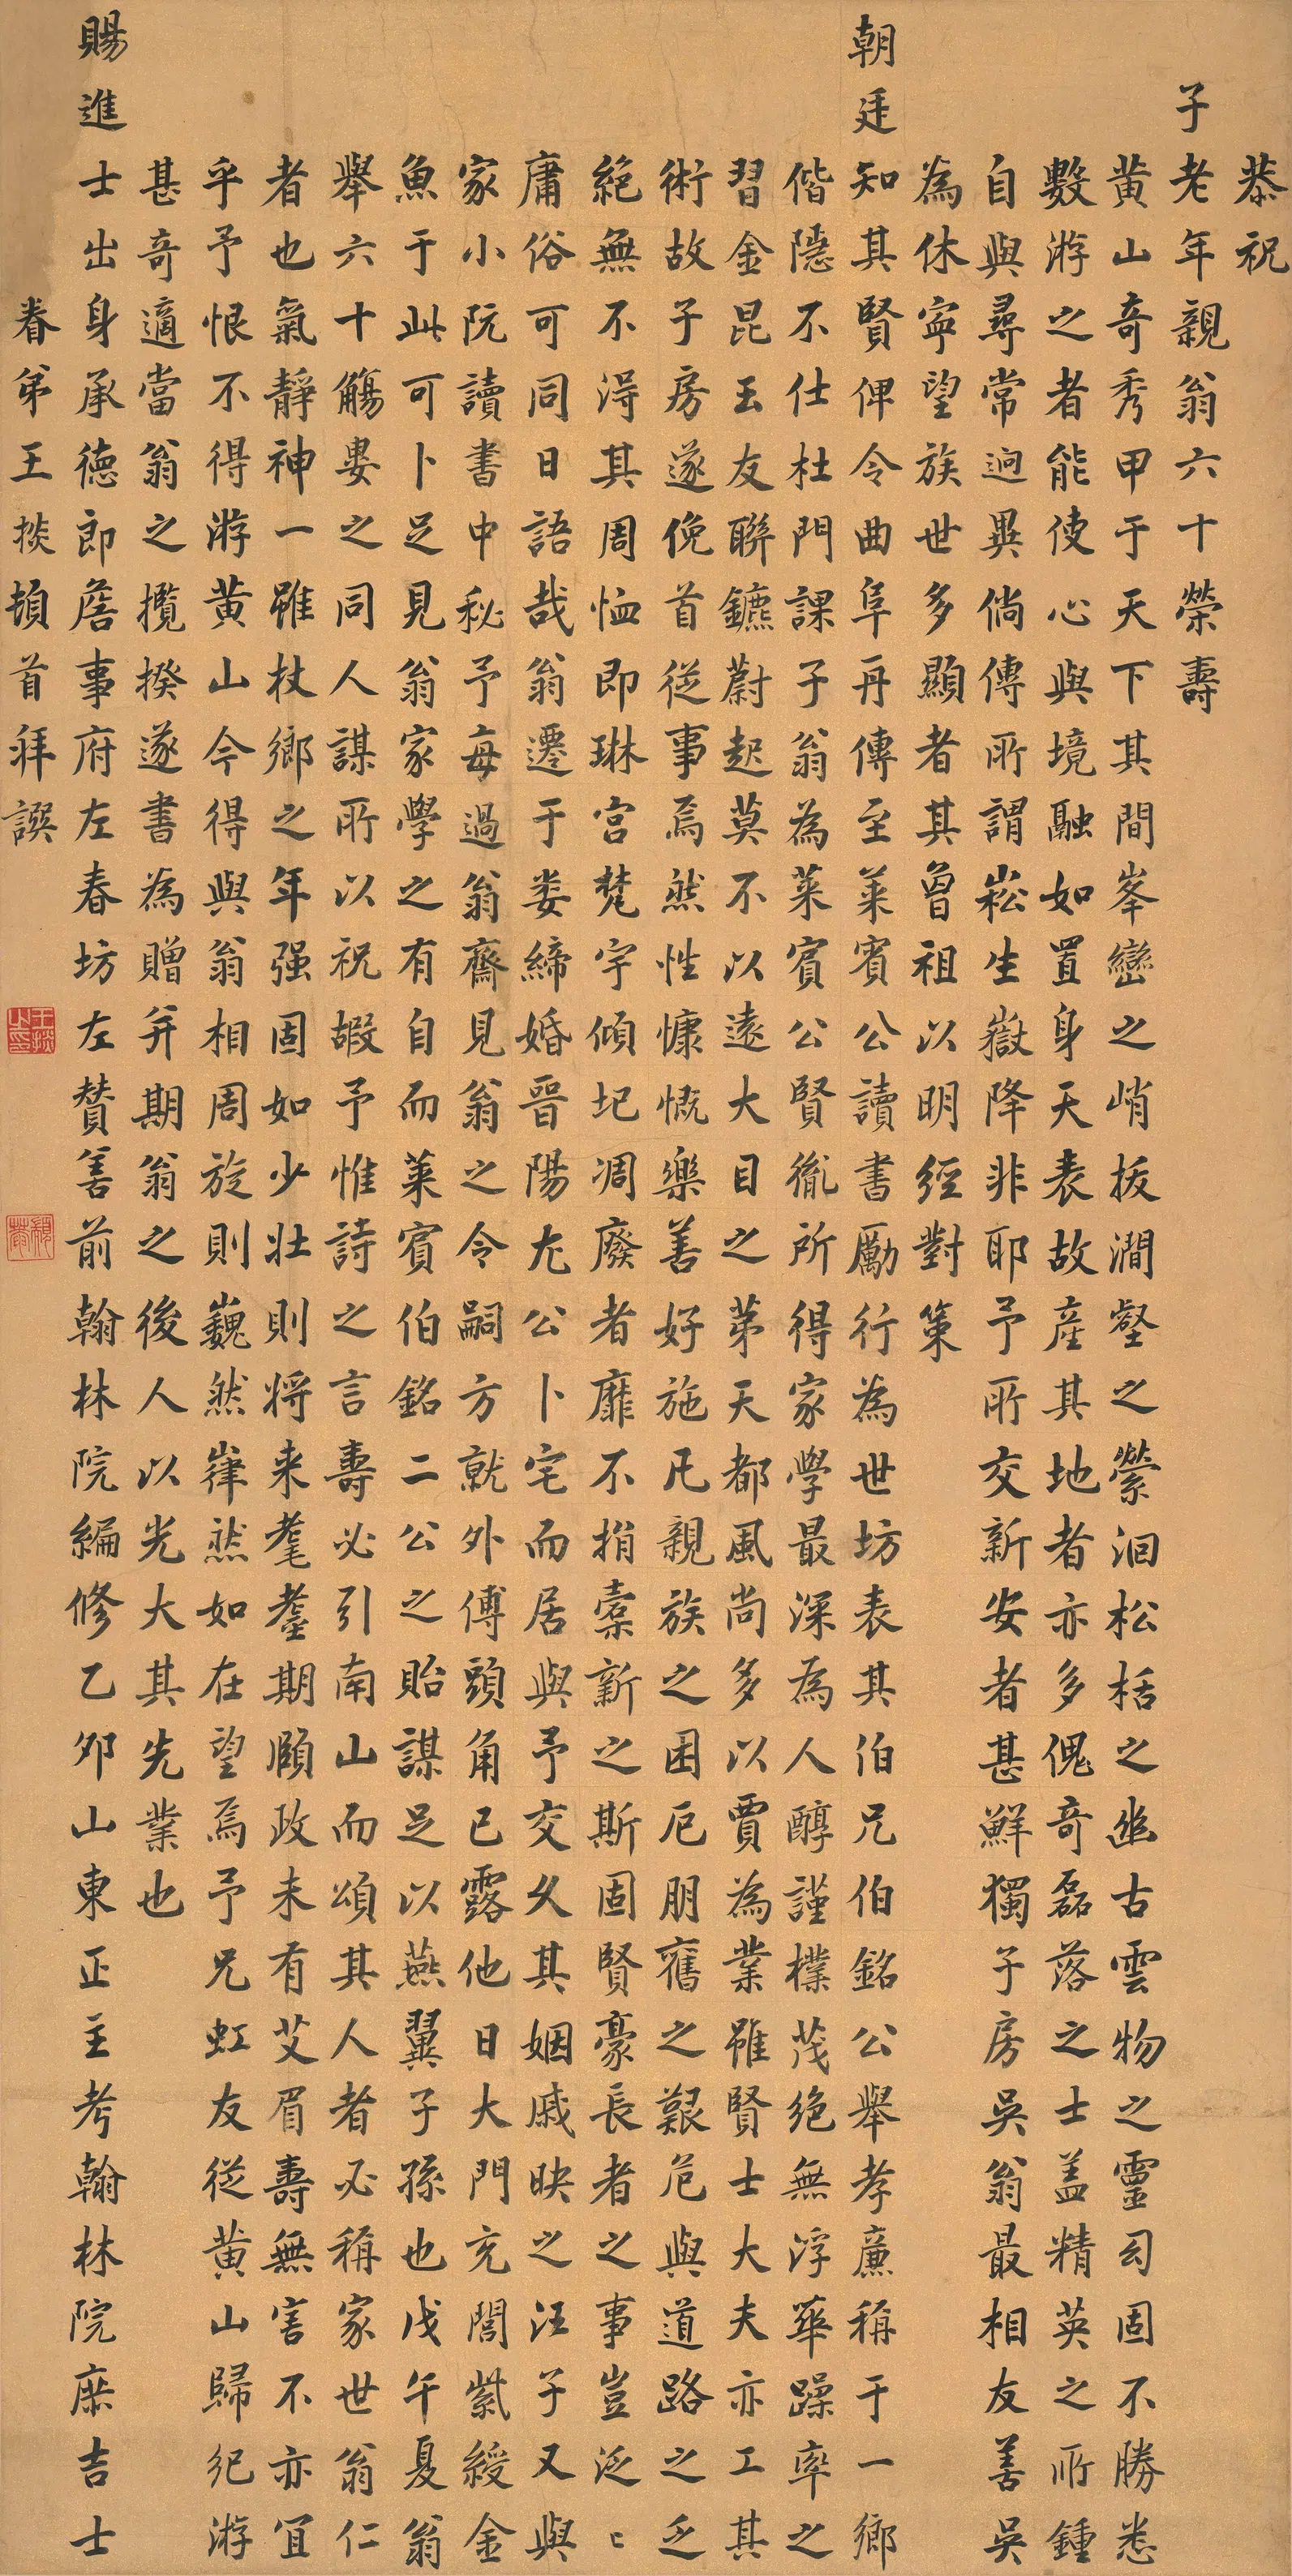 恭祝
子老年親翁六十榮壽
黄山奇秀甲于天下其間峯巒之峭拔澗壑之縈洄松栝之幽古雲物之靈幻固不勝悉
數游之者能使心與境融如置身天表故產其地者亦多傀奇磊落之士盖精英之所鍾
自與尋常迥異倘傳所謂崧生嶽降非耶予所交新安者甚鮮獨子房吳翁最相友善吳
為休寧望族世多顯者其曾祖以明經對策
朝廷知其賢俾令曲阜再傳至萊賓公讀書勵行為世坊表其伯兄伯銘公舉孝廉稱于一鄉
偕隱不仕杜門課子翁為萊賓公賢胤所得家學最深為人醇謹樸茂絶無浮華躁率之
習金昆玉友聯鑣蔚起莫不以遠大目之苐天都風尚多以賈為業雖賢士大夫亦工其
術故子房遂俛首從事焉然性慷慨樂善好施凡親族之困厄朋舊之艱危與道路之乏
絶無不得其周恤即琳宫梵宇傾圮凋廢者靡不捐槖新之斯固賢豪長者之事豈泛〻
庸俗可同日語哉翁遷于婁締婚晉陽尢公卜宅而居與予交久其姻戚映之汪子又與
家小阮讀書中秘予每過翁齋見翁之令嗣方就外傅頭角已露他日大門充閭紫綬金
魚于此可卜足見翁家學之有自而萊賓伯銘二公之貽謀足以燕翼子孫也戊午夏翁
舉六十觴婁之同人謀所以祝嘏予惟詩之言壽必引南山而頌其人者必稱家世翁仁
者也氣靜神一雖杖鄉之年强固如少壯則将来耄耋期頤政未有艾眉壽無害不亦宜
乎予恨不得游黄山今得與翁相周旋則巍然嵂然如在望焉予兄虹友從黄山歸紀游
甚奇適當翁之攬揆遂書為贈并期翁之後人以光大其先業也
賜進士出身承德郎詹事府左春坊左贊善前翰林院編修乙夘山東正主考翰林院庶吉士
眷弟王掞頓首拜譔
王掞之印